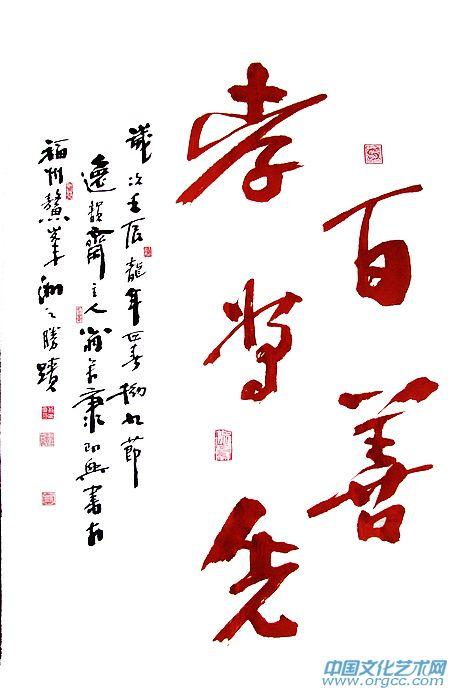 百善
孝当先
歲次壬辰龍年春節
逸韻齋主人即興書於
福州鰲峯之勝蹟
中国文化艺术网
www.orgcc.com